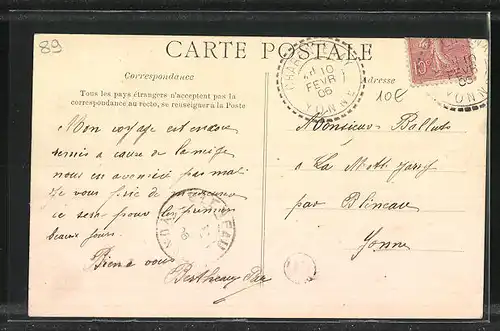 89
CARTE POSTALE
Correspondance
Adresse
Tous les pays étrangers n'acceptent pas la
correspondance au recto, se renseigner à la Poste
10€
10
FEVR
06
YONNE
Mon voyage est encore
remis a cause de la neige
nous en avons pas mal
Je vous prie de
ce sera pour les premiers
beaux jours.
Bien a vous
Bertheau
Monsieur Ballut
a La Mott
par Bléneau
Yonne